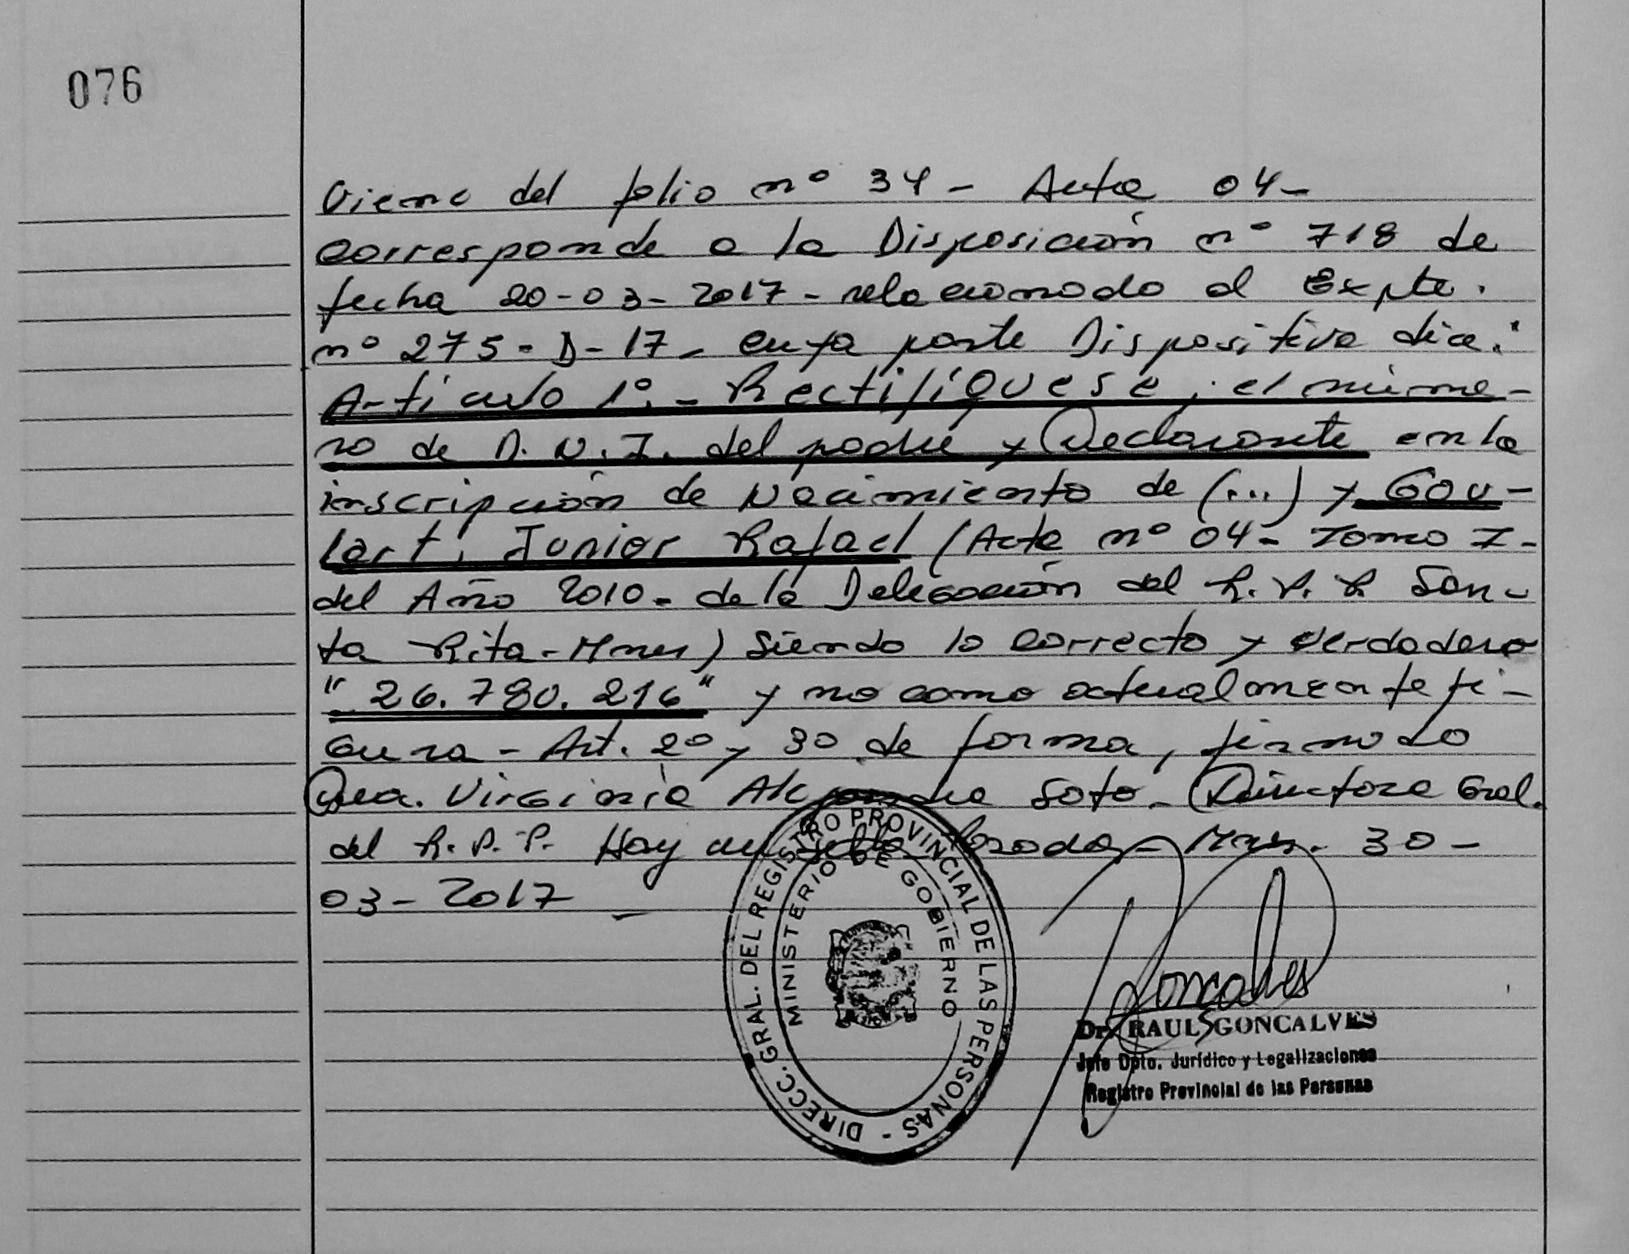 076
Viene del folio nº 34 - Acta 04 -
corresponde a la Disposición nº 718 de
fecha 20-03-2017 - relacionado al Expte.
nº 275-D-17 - cuya parte Dispositiva dice:"
Artículo 1º. - Rectifíquese, el núme-
ro de D.N.I. del padre y Declarante en la
inscripción de Nacimiento de (...) y GOU-
lart, Junior Rafael (Acta nº 04 - Tomo I -
del Año 2010 - de la Delegación del R.P.P. San-
ta Rita - Mnes) Siendo lo correcto y verdadero
"26.780.216" y no como actualmente fi-
gura - Art. 2º y 3º de forma, firmado
Dra. Virginia Alejandra Soto - Directora Gral.
del R.P.P. Hay un sello - Posadas - Mnes. 30-
03-2017 -
DIRECC. GRAL. DEL REGISTRO PROVINCIAL DE LAS PERSONAS -
MINISTERIO DE GOBIERNO
Goncalves
Dr. RAUL GONCALVES
Jefe Dpto. Jurídico y Legalizaciones
Registro Provincial de las Personas